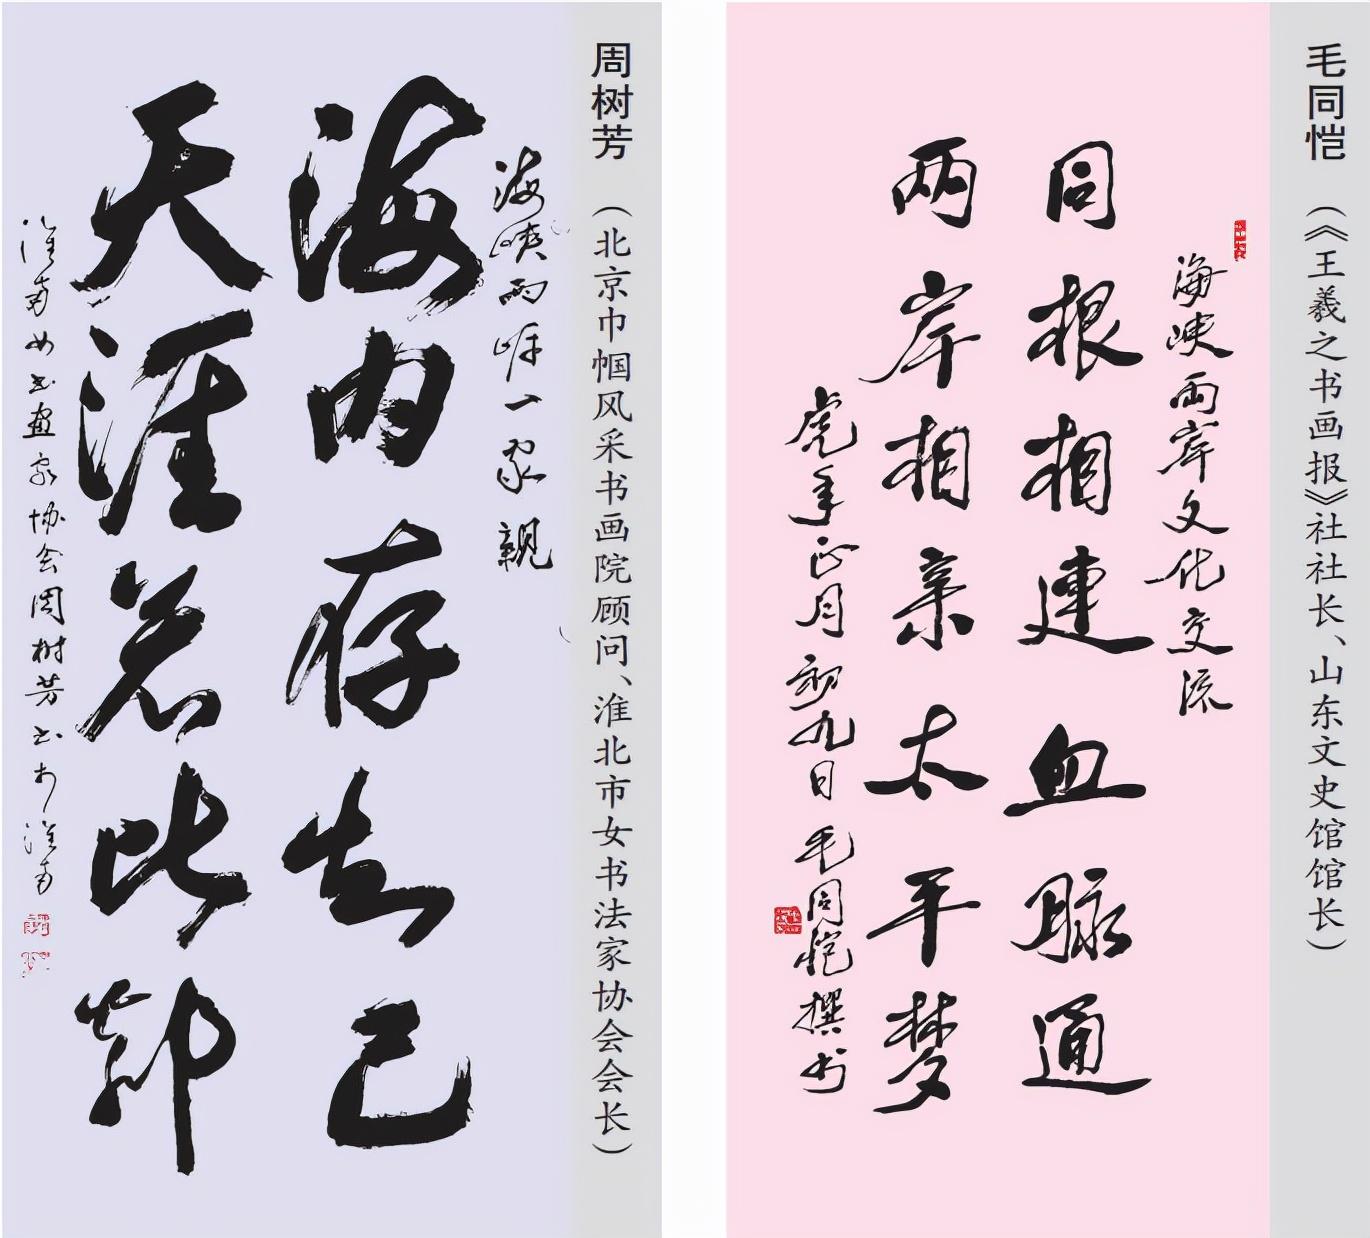 毛同恺（《王羲之书画报》社社长、山东文史馆馆长）
海峡两岸文化交流
同根相連血脉通
两岸相亲太平梦
虎年正月初九日毛同恺撰书
周树芳（北京巾帼风采书画院顾问、淮北市女书法家协会会长）
海峡两岸一家親
海内存知己
天涯若比鄰
淮南女书画家协会周树芳书于淮南